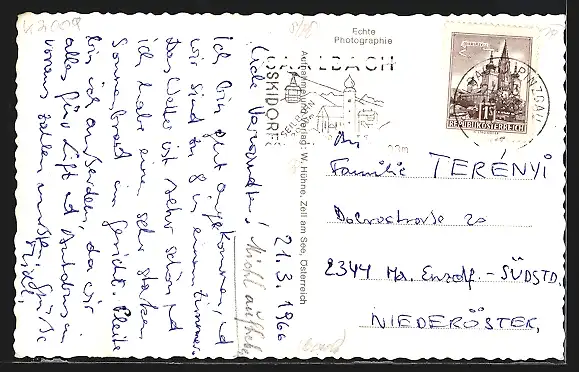 21.3.1966
Liebe Verwandten!
Ich bin gut angekommen, und
wir sind zu 8 in einem Zimmer.
Das Wetter ist sehr schön und
ich habe einen sehr starken
Sonnenbrand im Gesicht. Pleite
bin ich außerdem, da wir
alles für Lift und Autobus im
voraus zahlen mussten. Grüße
Echte
Photographie
Aufnahme und Verlag: W. Hühne, Zell am See, Österreich
SAALBACH
SKIDORF
SEILBAHN
PINZGAU
1 S
REPUBLIK ÖSTERREICH
An
Familie TERÉNYI
20
2344 Ma. Enzdf.-SÜDSTD.
NIEDERÖSTER.